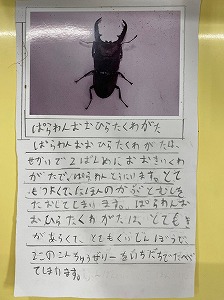 ぱらわんおおひらたくわがた
ぱらわんおおひらたくわがたは、
せかいで2ばんめにおおきいくわ
がたで、ぱらわんとうにいます。とて
もつよくて、にほんのかぶとむしを
たおしてしまいます。ぱらわんお
おひらたくわがたは、とてもき
があらくて、とてもくいしんぼうで、
2このこんちゅうぜりーを1にちでたべ
てしまいます。